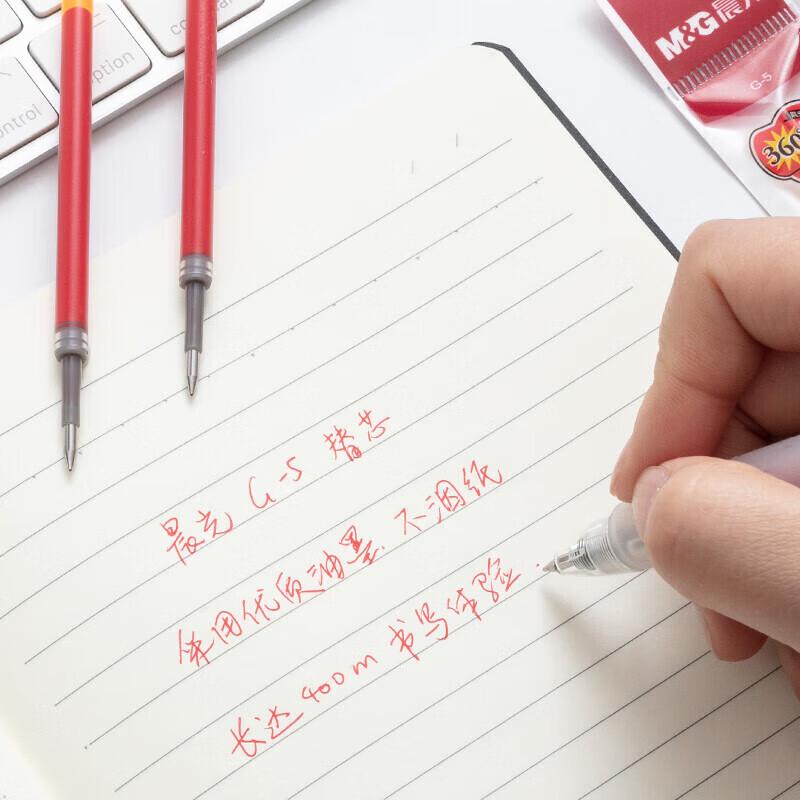 control
option
com
M&G 晨光
G-5
360°
晨光 G-5 替芯
使用优质油墨.不洇纸
长达400m 书写体验.